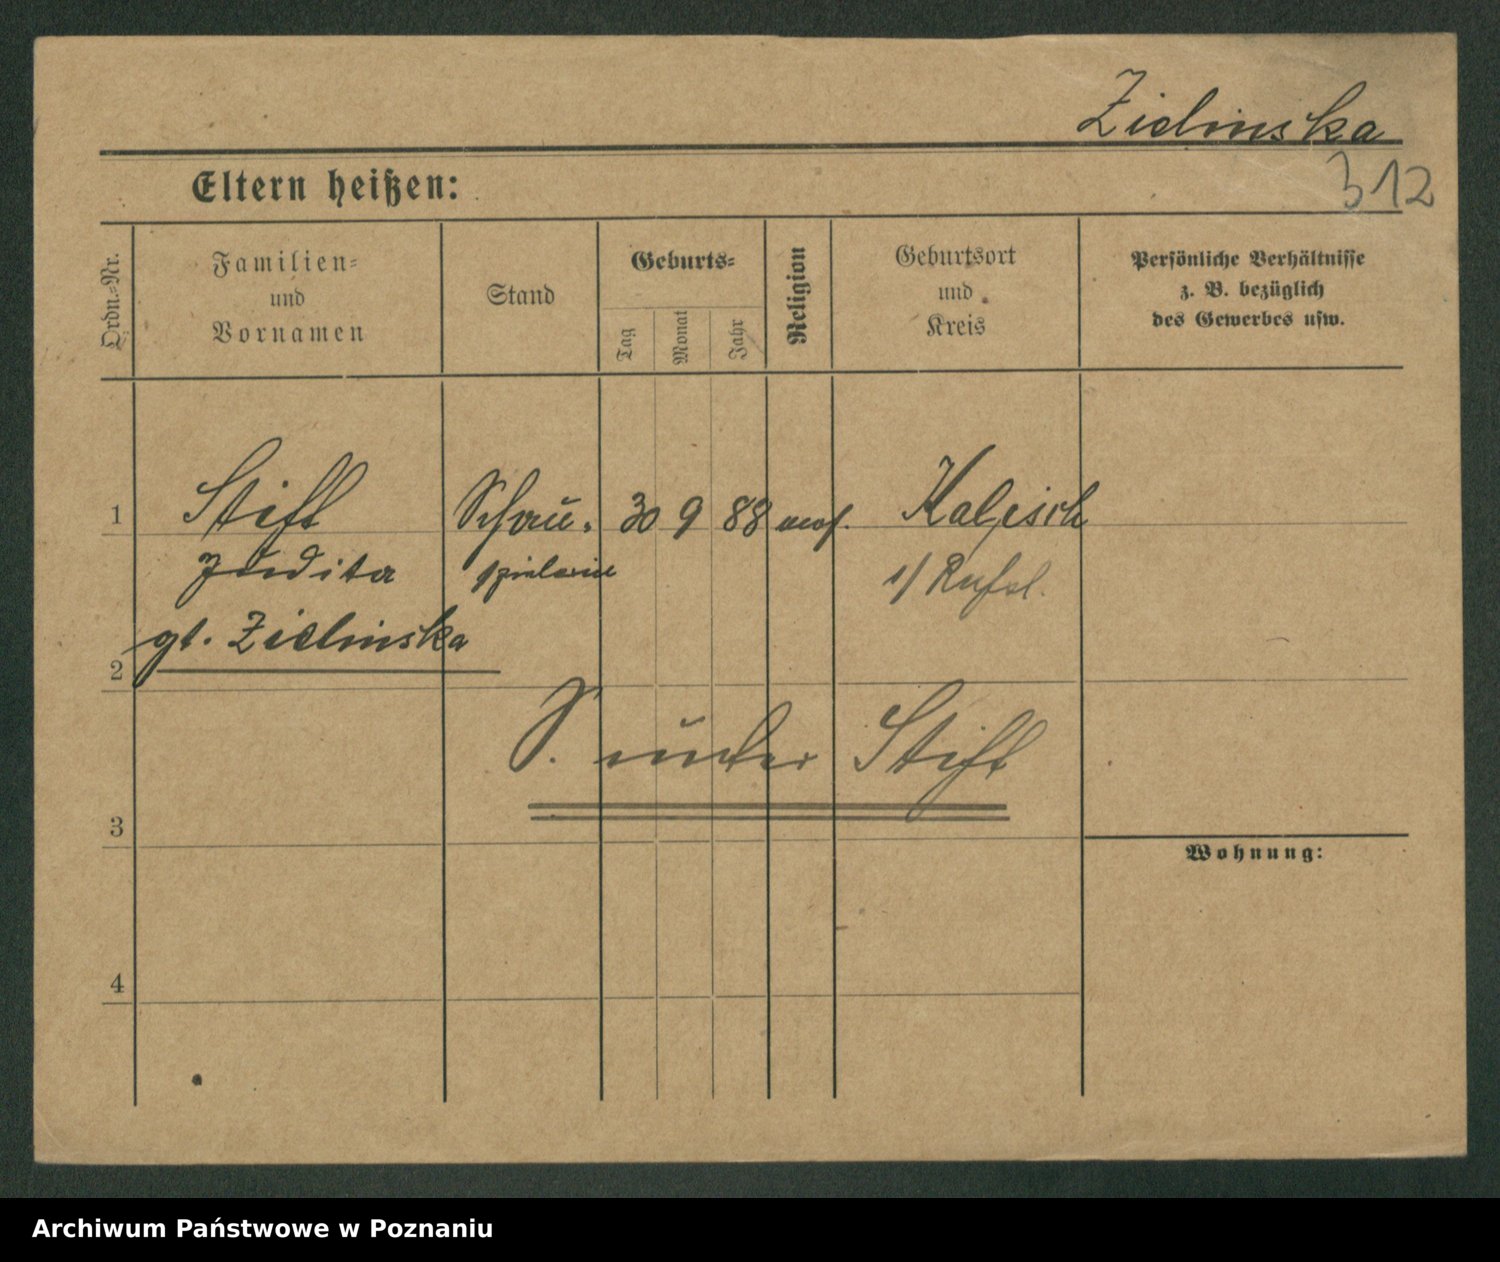 Zielinska
312
Eltern heißen:
Ordn.-Nr.
Familien-
und
Vornamen
Stand
Geburts-
Tag
Monat
Jahr
Religion
Geburtsort
und
Kreis
Persönliche Verhältnisse
z. B. bezüglich
des Gewerbes usw.
1 Stift Schau- 30 9 88 mos. Kalisch
Judita spielerin i/ Rußl.
gt. Zielinska
2
S. unter Stift
3
Wohnung:
4
Archiwum Państwowe w Poznaniu